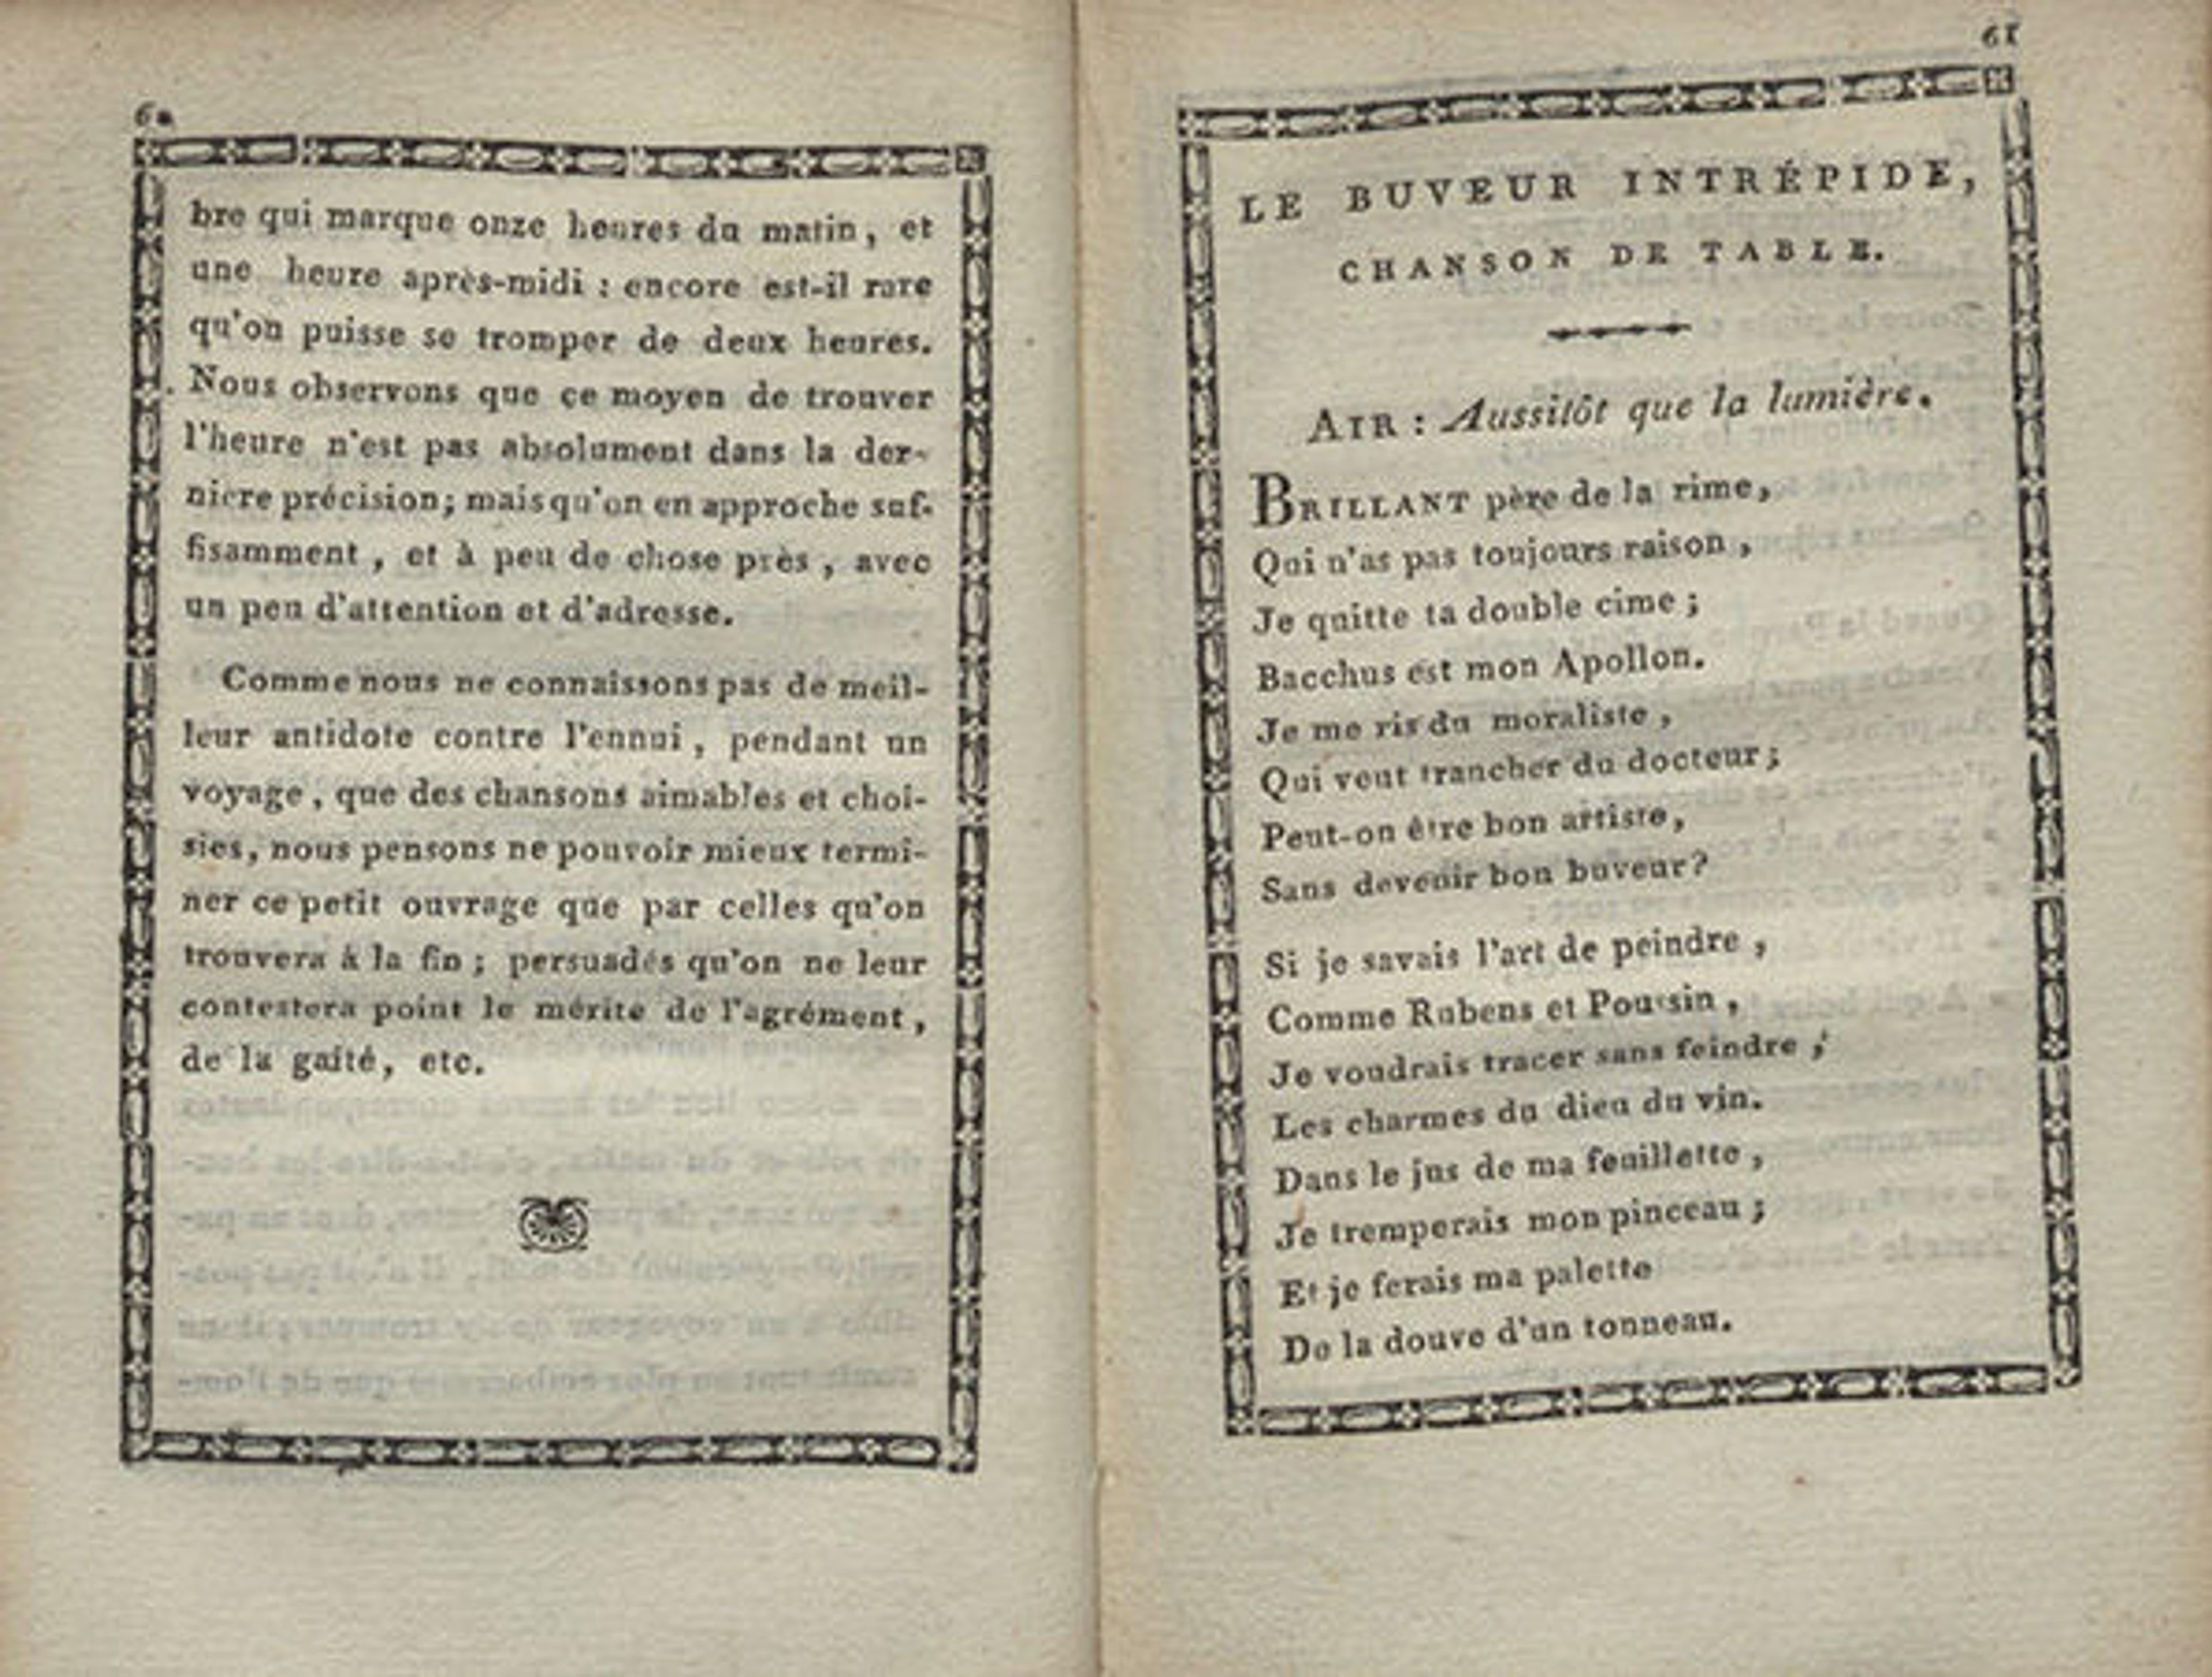 60
bre qui marque onze heures du matin, et
une heure après-midi : encore est-il rare
qu'on puisse se tromper de deux heures.
Nous observons que ce moyen de trouver
l'heure n'est pas absolument dans la der-
niere précision; mais qu'on en approche suf-
fisamment, et à peu de chose près, avec
un peu d'attention et d'adresse.
Comme nous ne connaissons pas de meil-
leur antidote contre l'ennui, pendant un
voyage, que des chansons aimables et choi-
sies, nous pensons ne pouvoir mieux termi-
ner ce petit ouvrage que par celles qu'on
trouvera à la fin; persuadés qu'on ne leur
contestera point le mérite de l'agrément,
de la gaîté, etc.
61
LE BUVEUR INTRÉPIDE,
CHANSON DE TABLE.
AIR : Aussitôt que la lumière.
BRILLANT père de la rime,
Qui n'as pas toujours raison,
Je quitte ta double cime;
Bacchus est mon Apollon.
Je me ris du moraliste,
Qui veut trancher du docteur;
Peut-on être bon artiste,
Sans devenir bon buveur?
Si je savais l'art de peindre,
Comme Rubens et Poussin,
Je voudrais tracer sans feindre,
Les charmes du dieu du vin.
Dans le jus de ma feuillette,
Je tremperais mon pinceau;
Et je ferais ma palette
De la douve d'un tonneau.